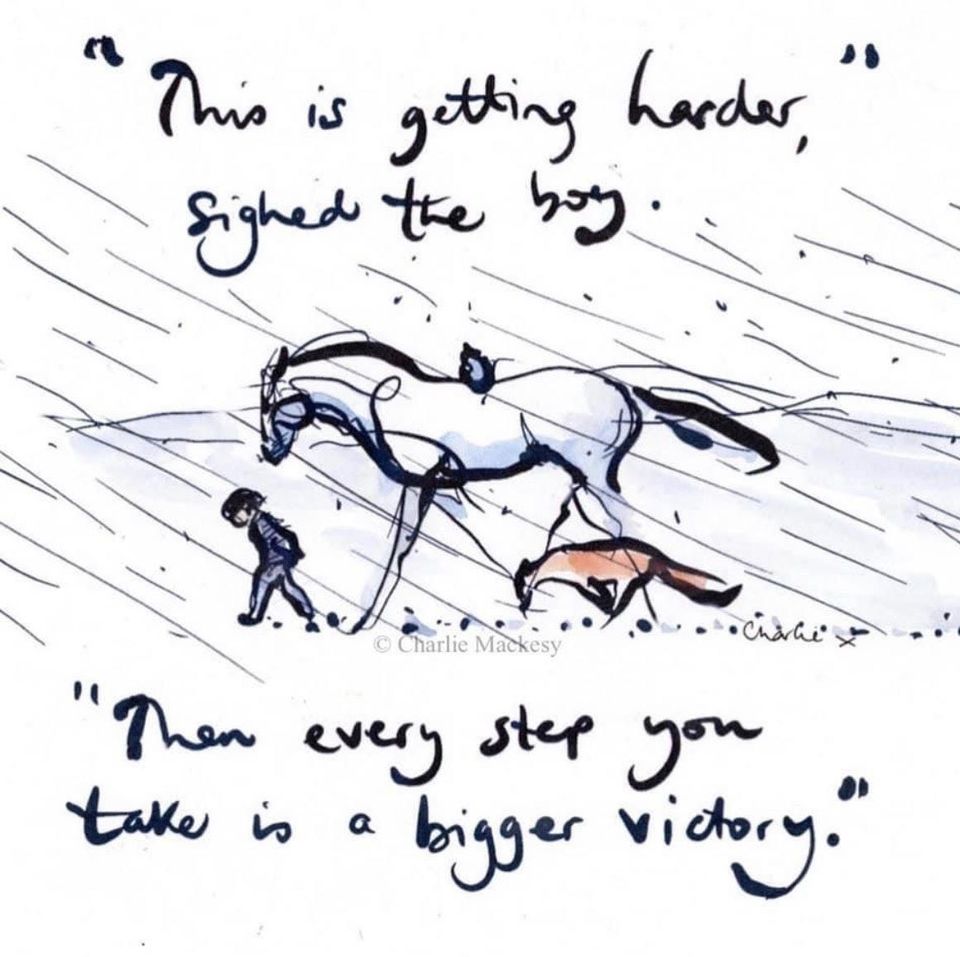 "This is getting harder,"
sighed the boy.
Charlie x
© Charlie Mackesy
"Then every step you
take is a bigger victory."